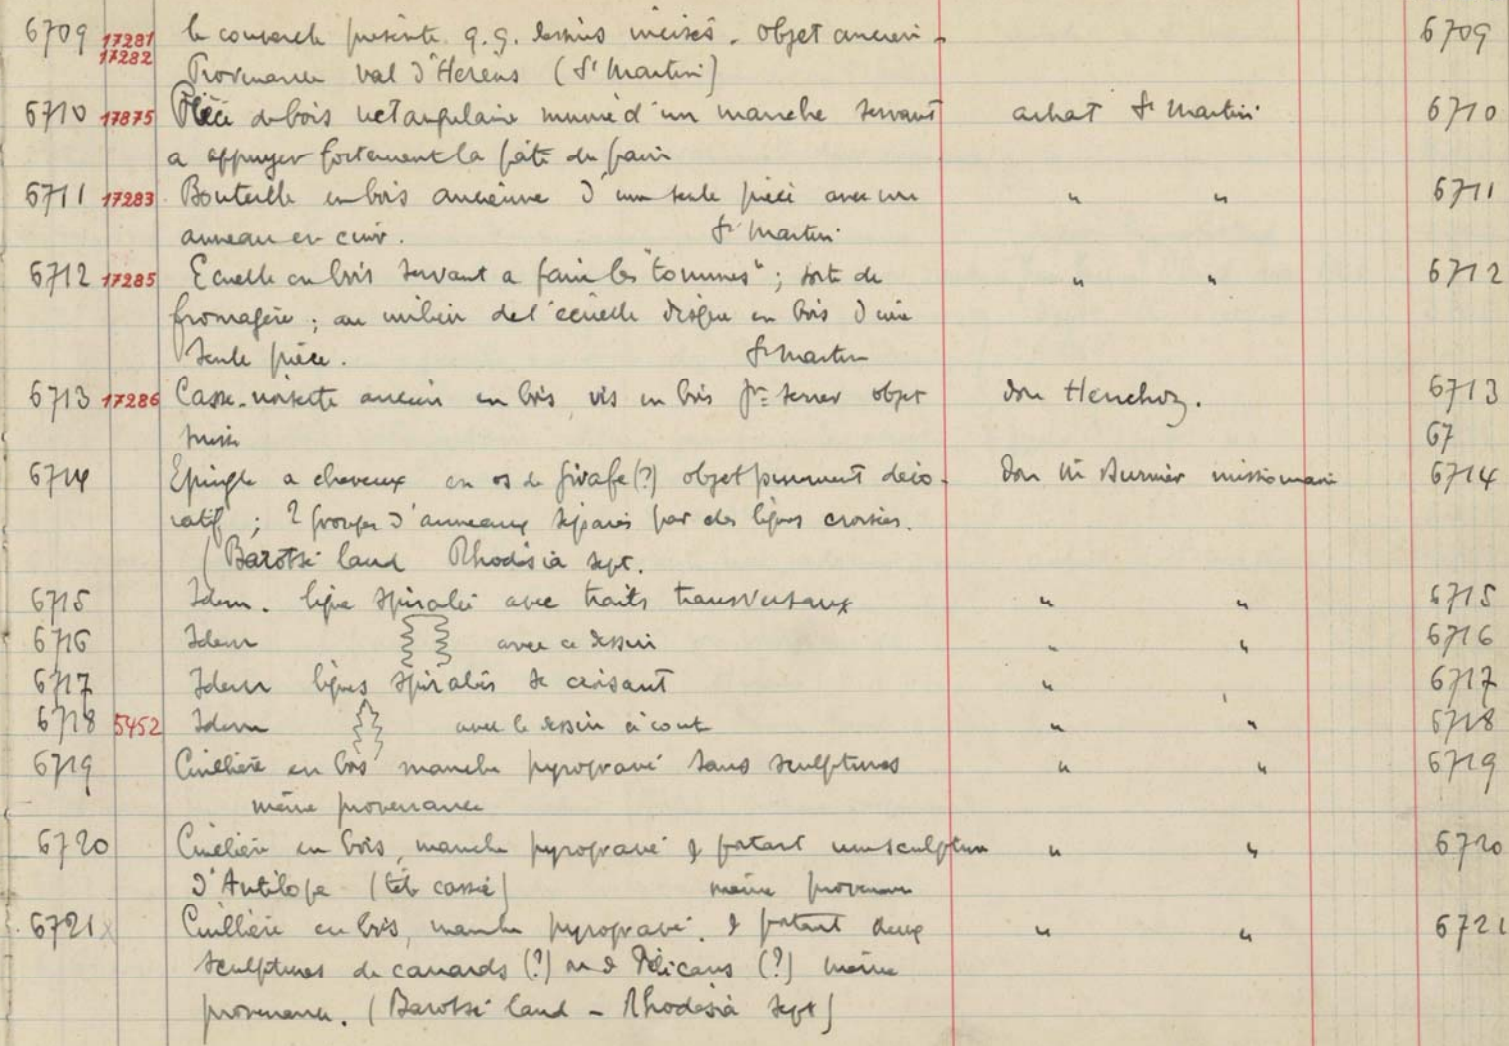 6709 17281 le couvercle présente q.q. dessins incisés. objet ancien. 6709
17282 Provenance val d'Herens (St Martin)
6710 17875 Pièce de bois rectangulaire munie d'un manche servant achat St Martin 6710
a appuyer fortement la pâte du pain
6711 17283 Bouteille en bois ancienne d'une seule pièce avec un " " 6711
anneau en cuir. St Martin
6712 17285 Ecuelle en bois servant a faire les "tommes"; sorte de " " 6712
fromagère; au milieu de l'écuelle disque en bois d'une
seule pièce. St Martin
6713 17286 Casse-noisette ancien en bois, vis en bois pr serrer objet don Henchoz. 6713
suisse 67
6714 Epingle a cheveux en os de girafe (?) objet purement déco- Don Mr Burnier missionnaire 6714
ratif; 2 groupes d'anneaux séparés par des lignes croisées.
(Barotsi land Rhodesia sept.
6715 Idem. ligne spiralée avec traits transversaux " " 6715
6716 Idem avec ce dessin " " 6716
6717 Idem lignes spiralées se croisant " 6717
6718 5452 Idem avec le dessin à cout " " 6718
6719 Cuillière en bois manche pyrogravé sans sculptures " " 6719
même provenance
6720 Cuillière en bois, manche pyrogravé & portant une sculpture " " 6720
d'Antilope (tête cassée) même provenance
6721 Cuillière en bois, manche pyrogravé. & portant deux " " 6721
sculptures de canards (?) ou de Pélicans (?) même
provenance. (Barotsi land - Rhodesia sept)